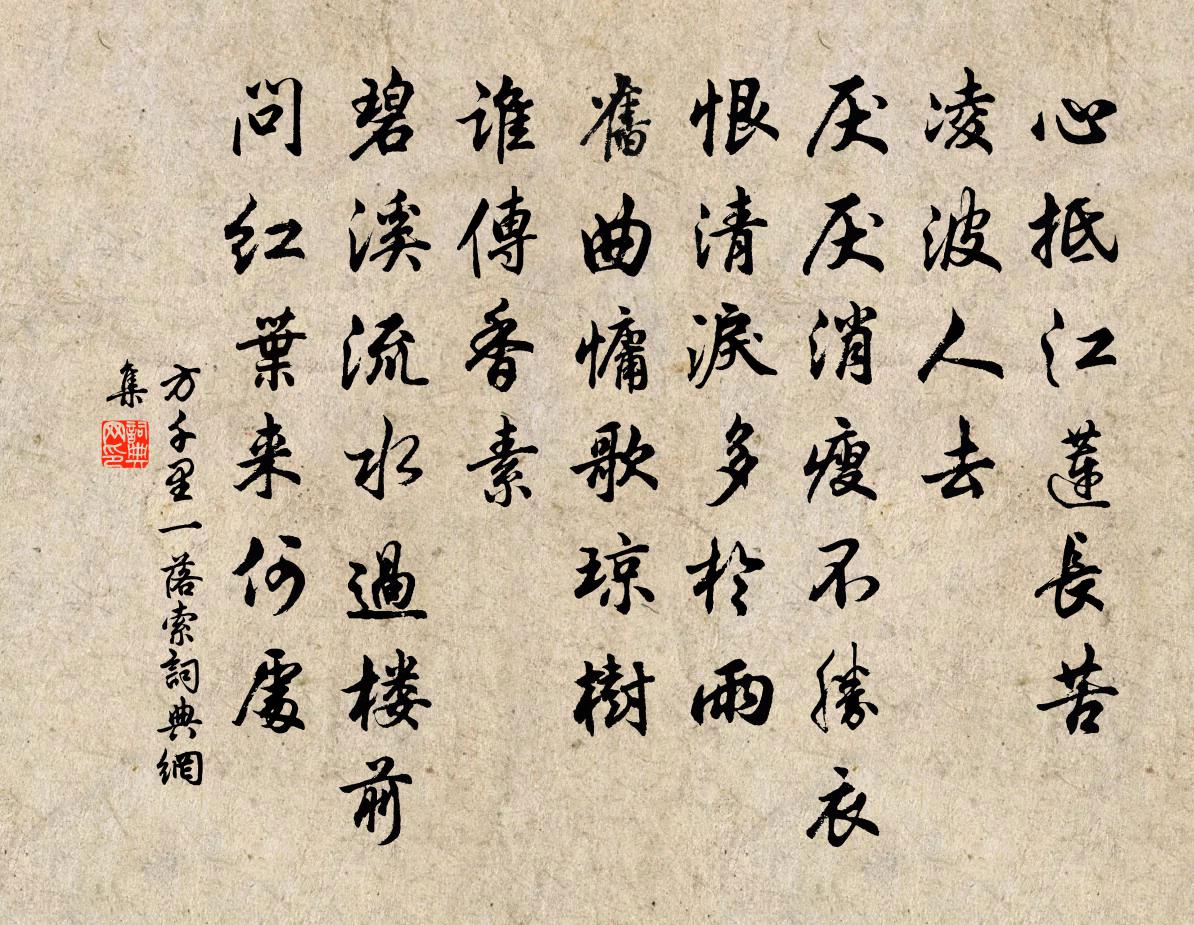 心抵江蓮長苦
凌波人去
厌厌消瘦不勝衣
恨清淚多於雨
舊曲慵歌琼樹
誰傳香素
碧溪流水過楼前
問红葉来何處
方千里一落索詞典網
集
詞典
网印